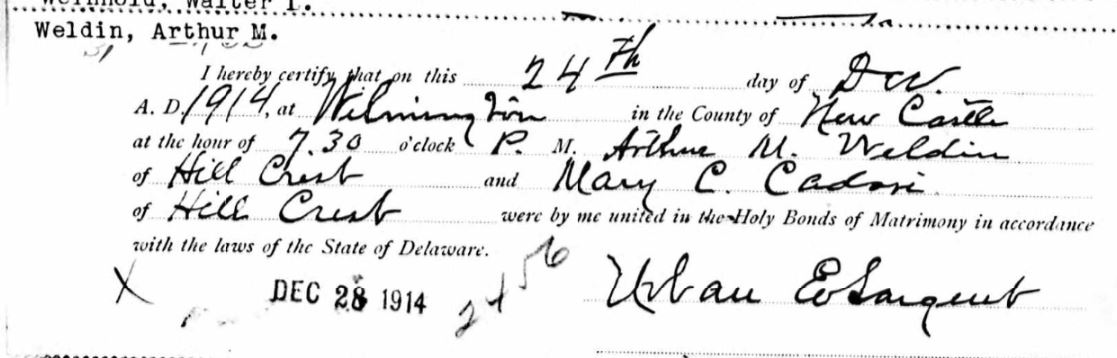 Weldin, Arthur M.
I hereby certify that on this 24th day of Dec.
A. D. 1914, at Wilmington in the County of New Castle
at the hour of 7.30 o'clock P. M. Arthur M. Weldin
of Hill Crest and Mary C.
of Hill Crest were by me united in the Holy Bonds of Matrimony in accordance
with the laws of the State of Delaware.
X DEC 28 1914 Urban E Sargent